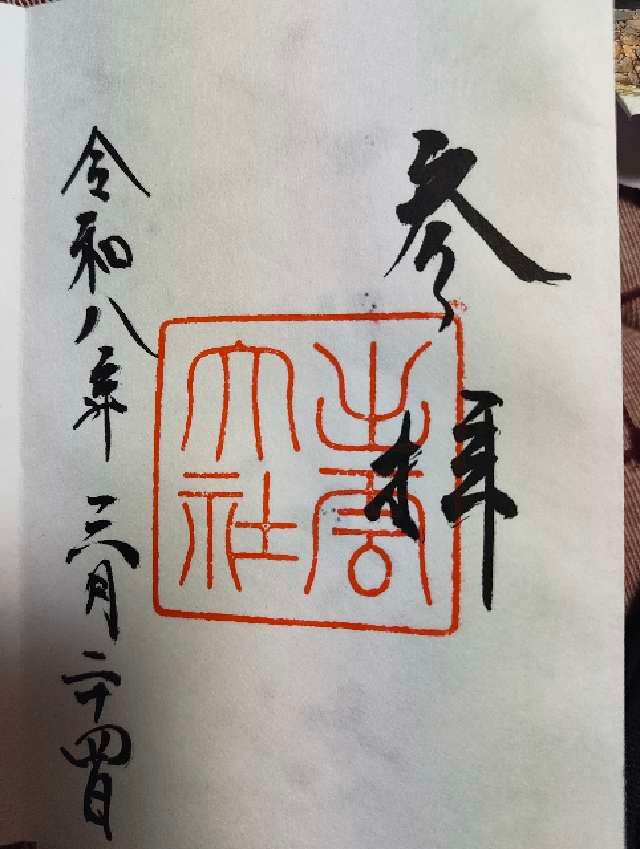 参拝
出雲
大社
令和八年三月二十四日